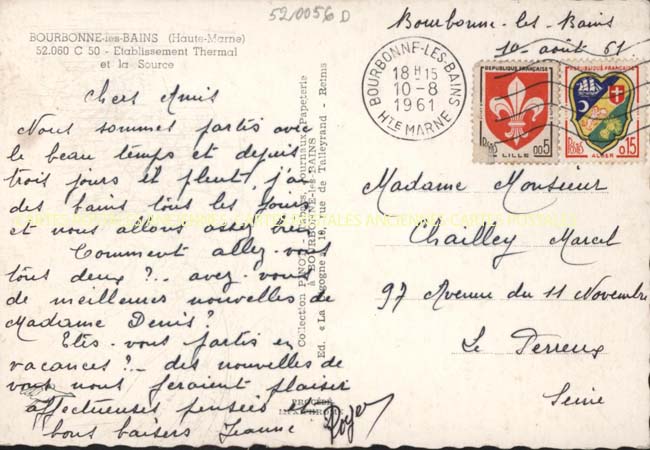 52/0056 D
BOURBONNE-les-BAINS (Haute-Marne)
52.060 C 50 - Etablissement Thermal
et la Source
Chers Amis
Nous sommes partis avec
le beau temps et depuis
trois jours il pleut, j'ai
des bains tous les jours
et nous allons assez bien
Comment allez-vous
tous deux ?.. avez-vous
de meilleures nouvelles de
Madame Denis ?
Etes-vous partis en
vacances ?.. des nouvelles de
vous nous feraient plaisir
affectueuses pensées
bons baisers Jeanne
Roger
Collection PINOT - Tabacs, Journaux, Papeterie
à BOURBONNE-les-BAINS
Ed. « La Cigogne », 18, rue de Talleyrand - Reims
PROCÉDÉ
Bourbonne-les-Bains
10 août 61
BOURBONNE-LES-BAINS
18 H 15
10-8
1961
HTE MARNE
REPUBLIQUE FRANÇAISE
POSTES
0,05
LILLE
REPUBLIQUE FRANÇAISE
POSTES
0,15
ALGER
Madame Monsieur
Chailley Marcel
97 Avenue du 11 Novembre
Le Perreux
Seine